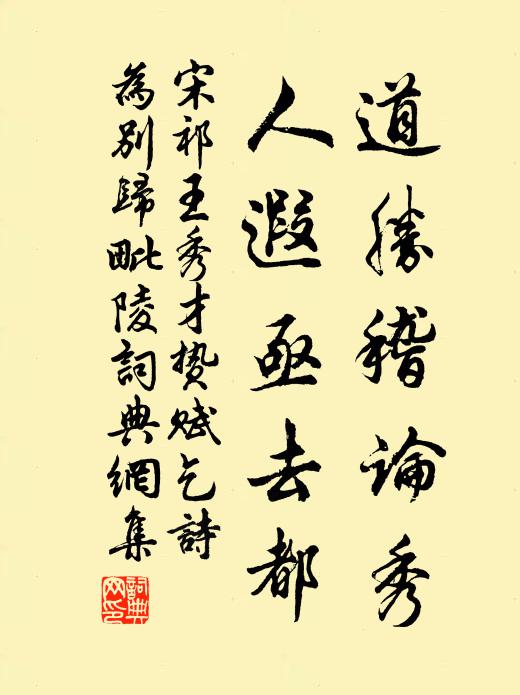 道勝稽論秀
人遐亟去都
宋祁王秀才贄賦乞詩
為別歸毗陵詞典網集
詞典網印